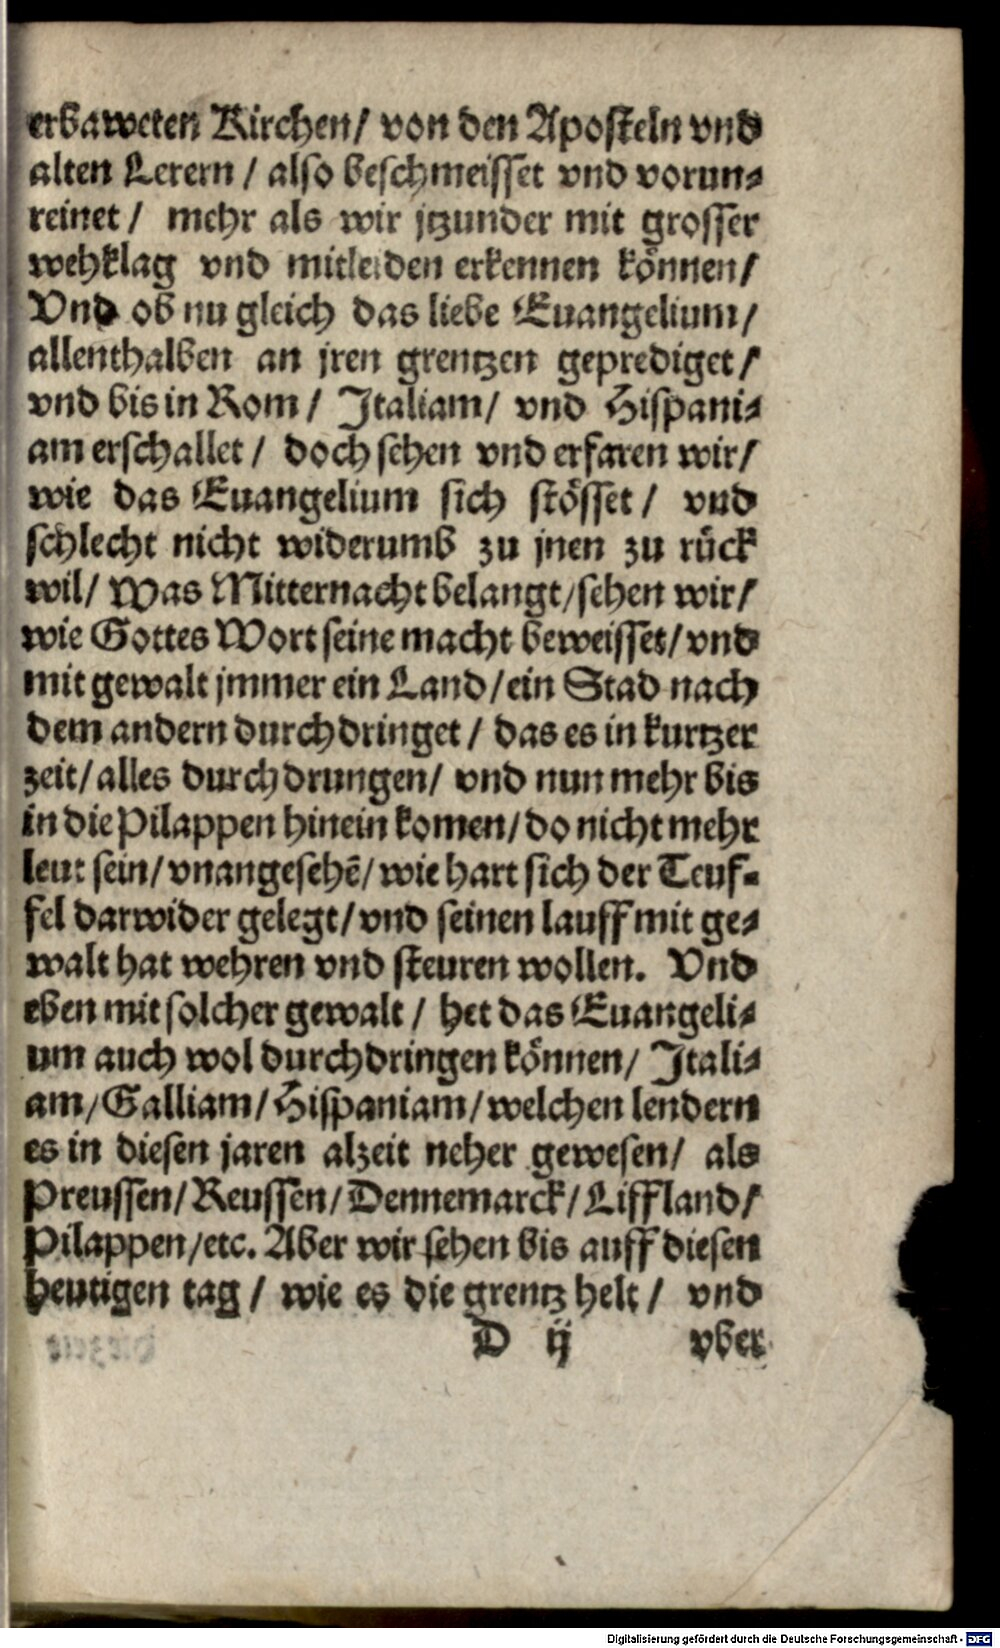 erbaweten Kirchen/ von den Aposteln vnd
alten Lerern / also beschmeisset vnd vorun-
reinet / mehr als wir jtzunder mit grosser
wehklag vnd mitleiden erkennen können/
Vnd ob nu gleich das liebe Euangelium/
allenthalben an jren grentzen geprediget/
vnd bis in Rom / Italiam/ vnd Hispani-
am erschallet / doch sehen vnd erfaren wir/
wie das Euangelium sich stösset / vnd
schlecht nicht widerumb zu jnen zu rück
wil/ Was Mitternacht belangt/sehen wir/
wie Gottes Wort seine macht beweisset/vnd
mit gewalt jmmer ein Land/ein Stad nach
dem andern durchdringet / das es in kurtzer
zeit/alles durchdrungen/ vnd nun mehr bis
in die Pilappen hinein komen/do nicht mehr
leut sein/vnangesehē/wie hart sich der Teuf-
fel darwider gelegt/vnd seinen lauff mit ge-
walt hat wehren vnd steuren wollen. Vnd
eben mit solcher gewalt / het das Euangeli-
um auch wol durchdringen können/ Itali-
am/Galliam/Hispaniam/welchen lendern
es in diesen jaren alzeit neher gewesen/ als
Preussen/Reussen/Dennemarck/Liffland/
Pilappen/etc. Aber wir sehen bis auff diesen
heutigen tag / wie es die grentz helt / vnd
D ij vber
Digitalisierung gefördert durch die Deutsche Forschungsgemeinschaft - DFG